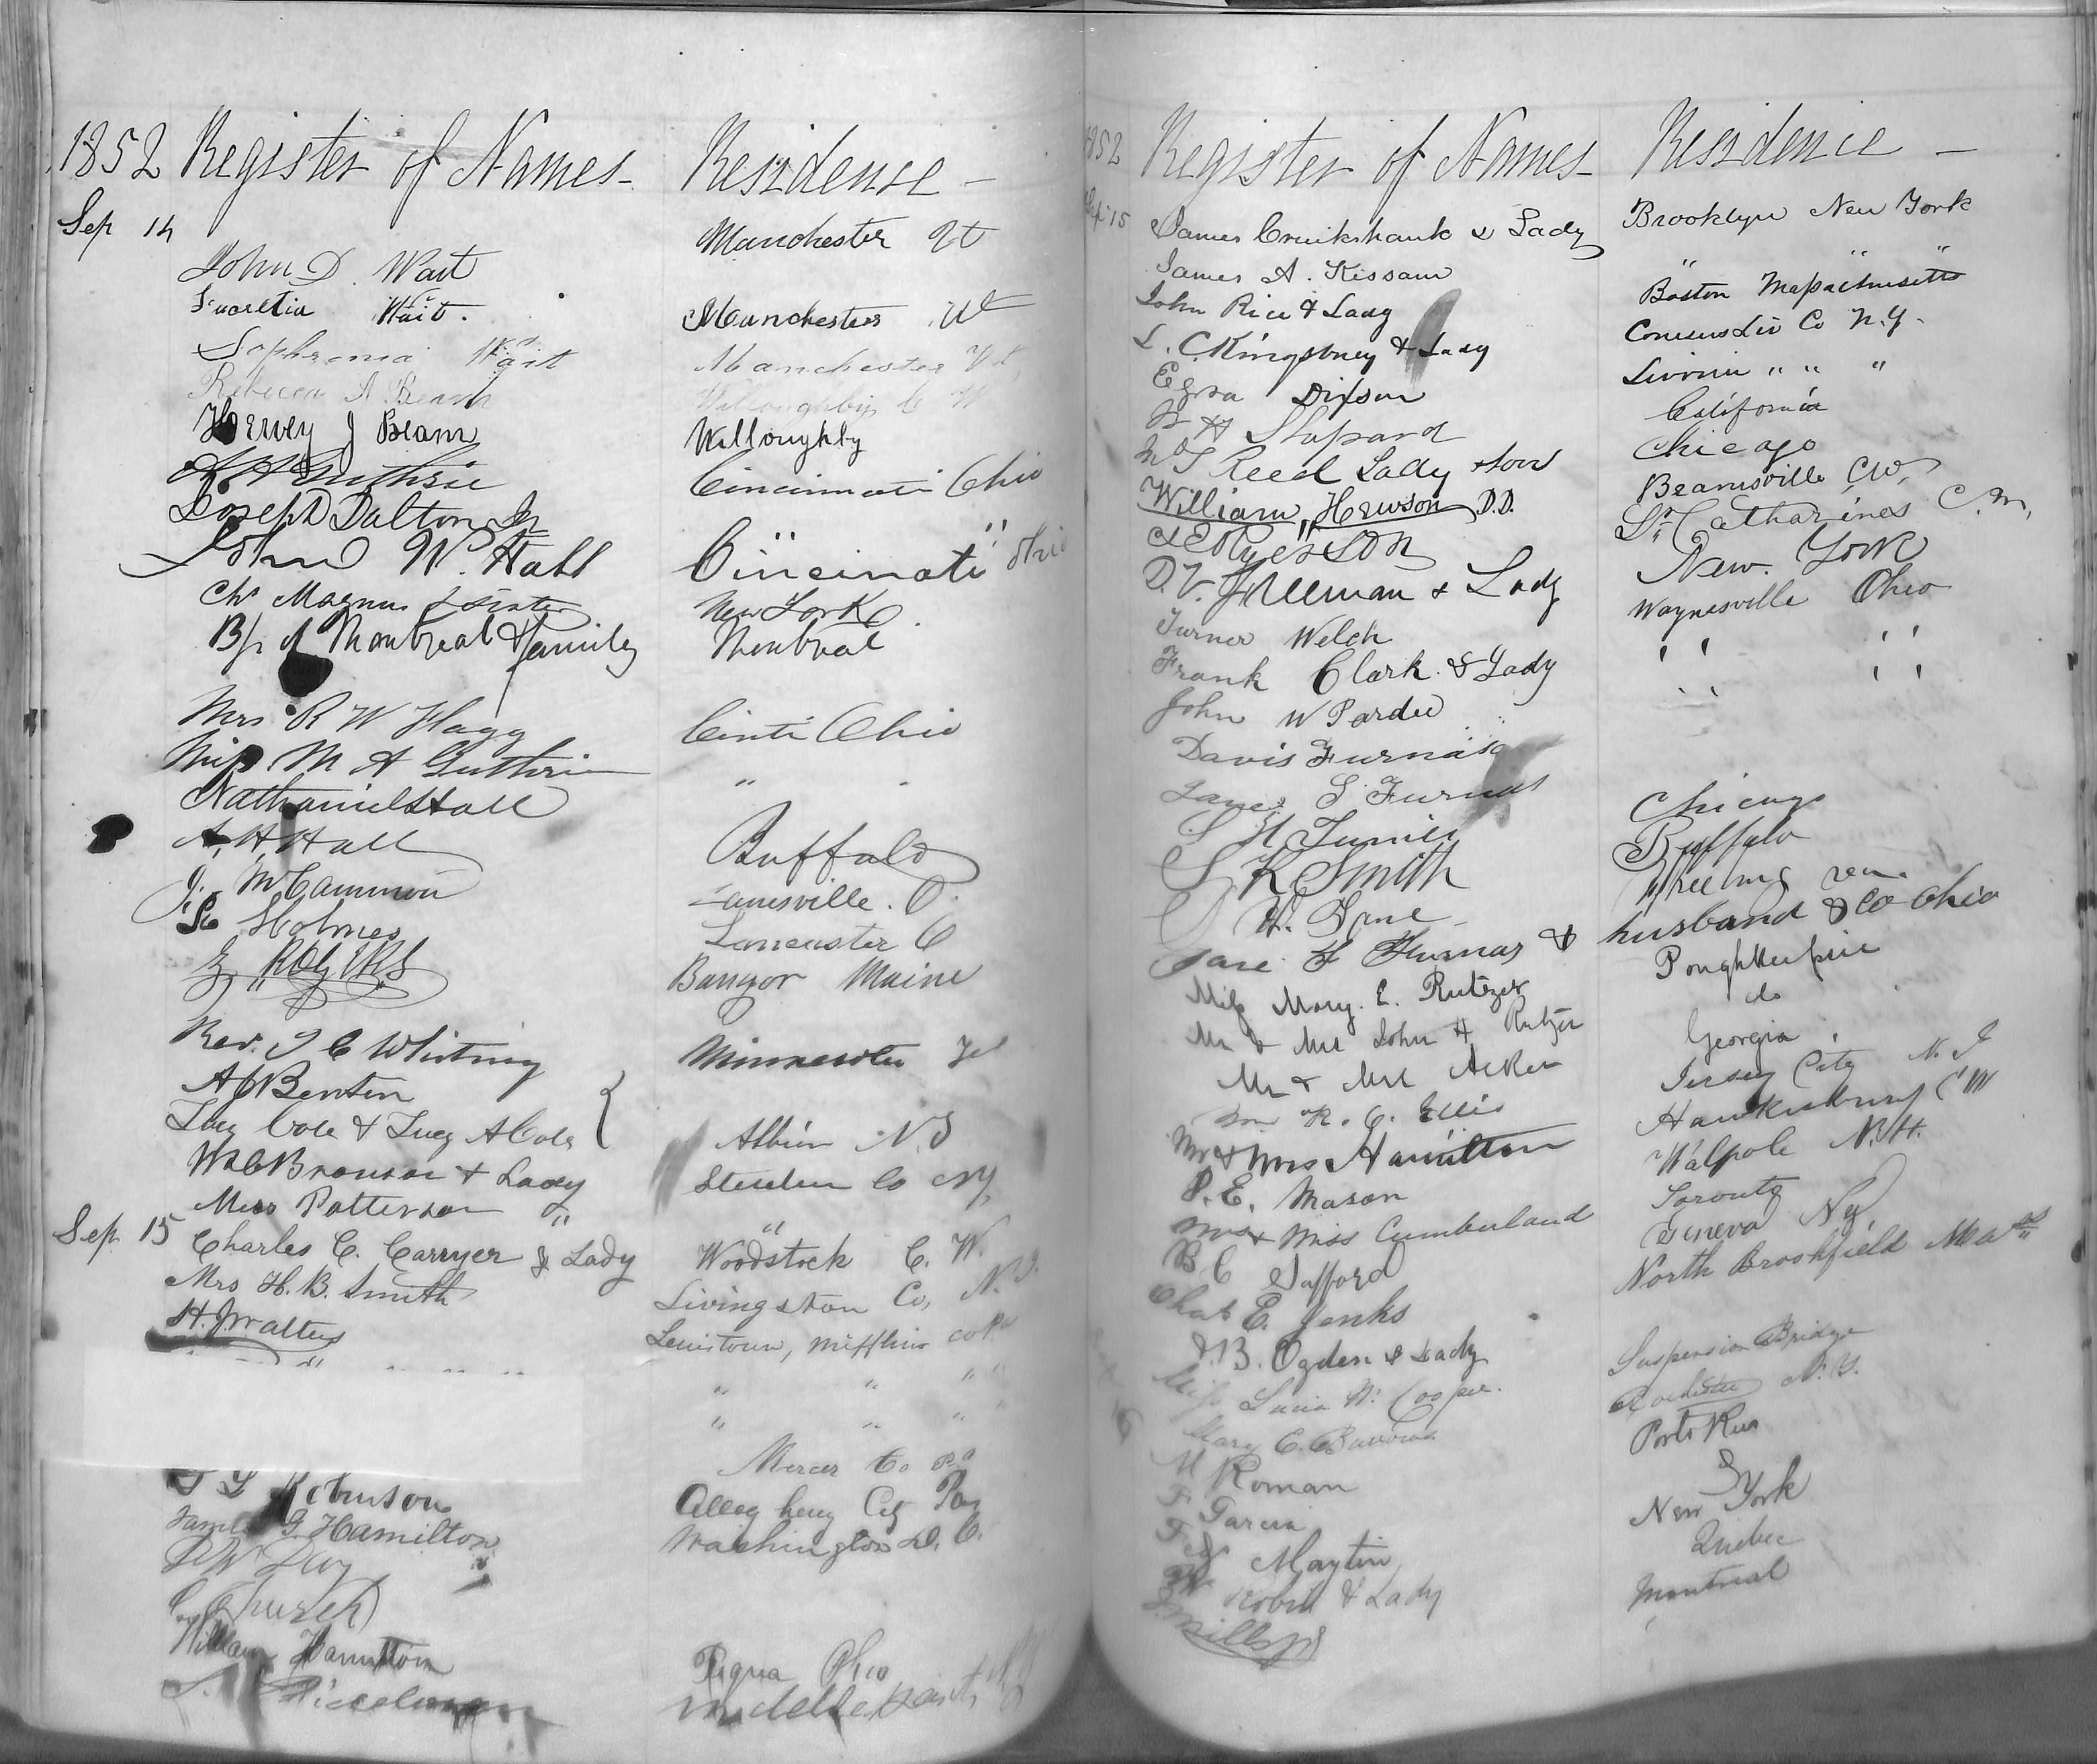 1852 Register of Names - Residence -
Sep 14 Manchester Vt
John D. Wait
Lucretia Wait. Manchester Vt
Sophronia Wait Manchester Vt
Rebecca A Beam Willoughby C W
Harvey J Beam Willoughby
A H Guthrie Cincinnati Ohio
Joseph Dalton Jr " "
John W. Hall Cincinati Ohio
Chs Magnus & sister New York
Bp of Montreal & family Montreal
Mrs R W Flagg Cinti Ohio
Miss M A Guthrie "
Nathaniel Hall
A. H. Hall Buffalo
J. McCammon Zanesville. O.
Holmes Lancaster O
E Rogers Bangor Maine
Rev. J C Whitney Minnesota
A G Benton
Lucy Cole & Lucy A Cole Albion N.Y
W B Bronson & Lady Steuben Co N.Y,
Miss Patterson " "
Sep 15 Charles C. Carryer & Lady Woodstock C. W.
Mrs H. B. Smith Livingston Co, N.Y.
H. J. Walters Lewistown, Mifflin co Pa
" " "
" " "
Mercer Co Pa
Robinson Allegheny City Pa
James G. Hamilton Washington D. C.
Church
William Hamilton Piqua Ohio
1852 Register of Names - Residence -
Sep 15 James Cruikshank & Lady Brooklyn New York
James A. Kissam " " "
John Rice & Lady Boston Massachusetts
L. C Kingsbury & Lady Conesus Liv Co N.Y.
Ezra Dixson Livonia " " "
Shepard California
Reed Lady & son Chicago
William Hewson D.D. Beamsville CW,
Ryerson St Catharines C. W,
D. V. Freeman & Lady New York
Turner Welch Waynesville Ohio
Frank Clark & Lady " "
John W Pardee " "
Davis Furnas
S. Furnas
Turner Chicago
S K Smith Buffalo
W. Lane Wheeling
Jane F Furnas & husband & co Ohio
Miss Mary. E. Rutzer Poughkeepsie
Mr & Mrs John H Rutzer do
Mr & Mrs Acker Georgia
R. C. Ellis Jersey City N. J
Mr & Mrs Hamilton Hawkesbury C W
P. E. Mason Walpole N. H.
Mrs & Miss Cumberland Toronto
B C Safford Geneva N.Y,
Chas E. Jenks North Brookfield Mass
J. B. Ogden & Lady Suspension Bridge
Miss Lucia W. Cooper. Rochester N. Y.
Mary E. Barrows Porto Rico
M Roman
F Garcia New York
Maytin Quebec
Robin & Lady Montreal
Mills